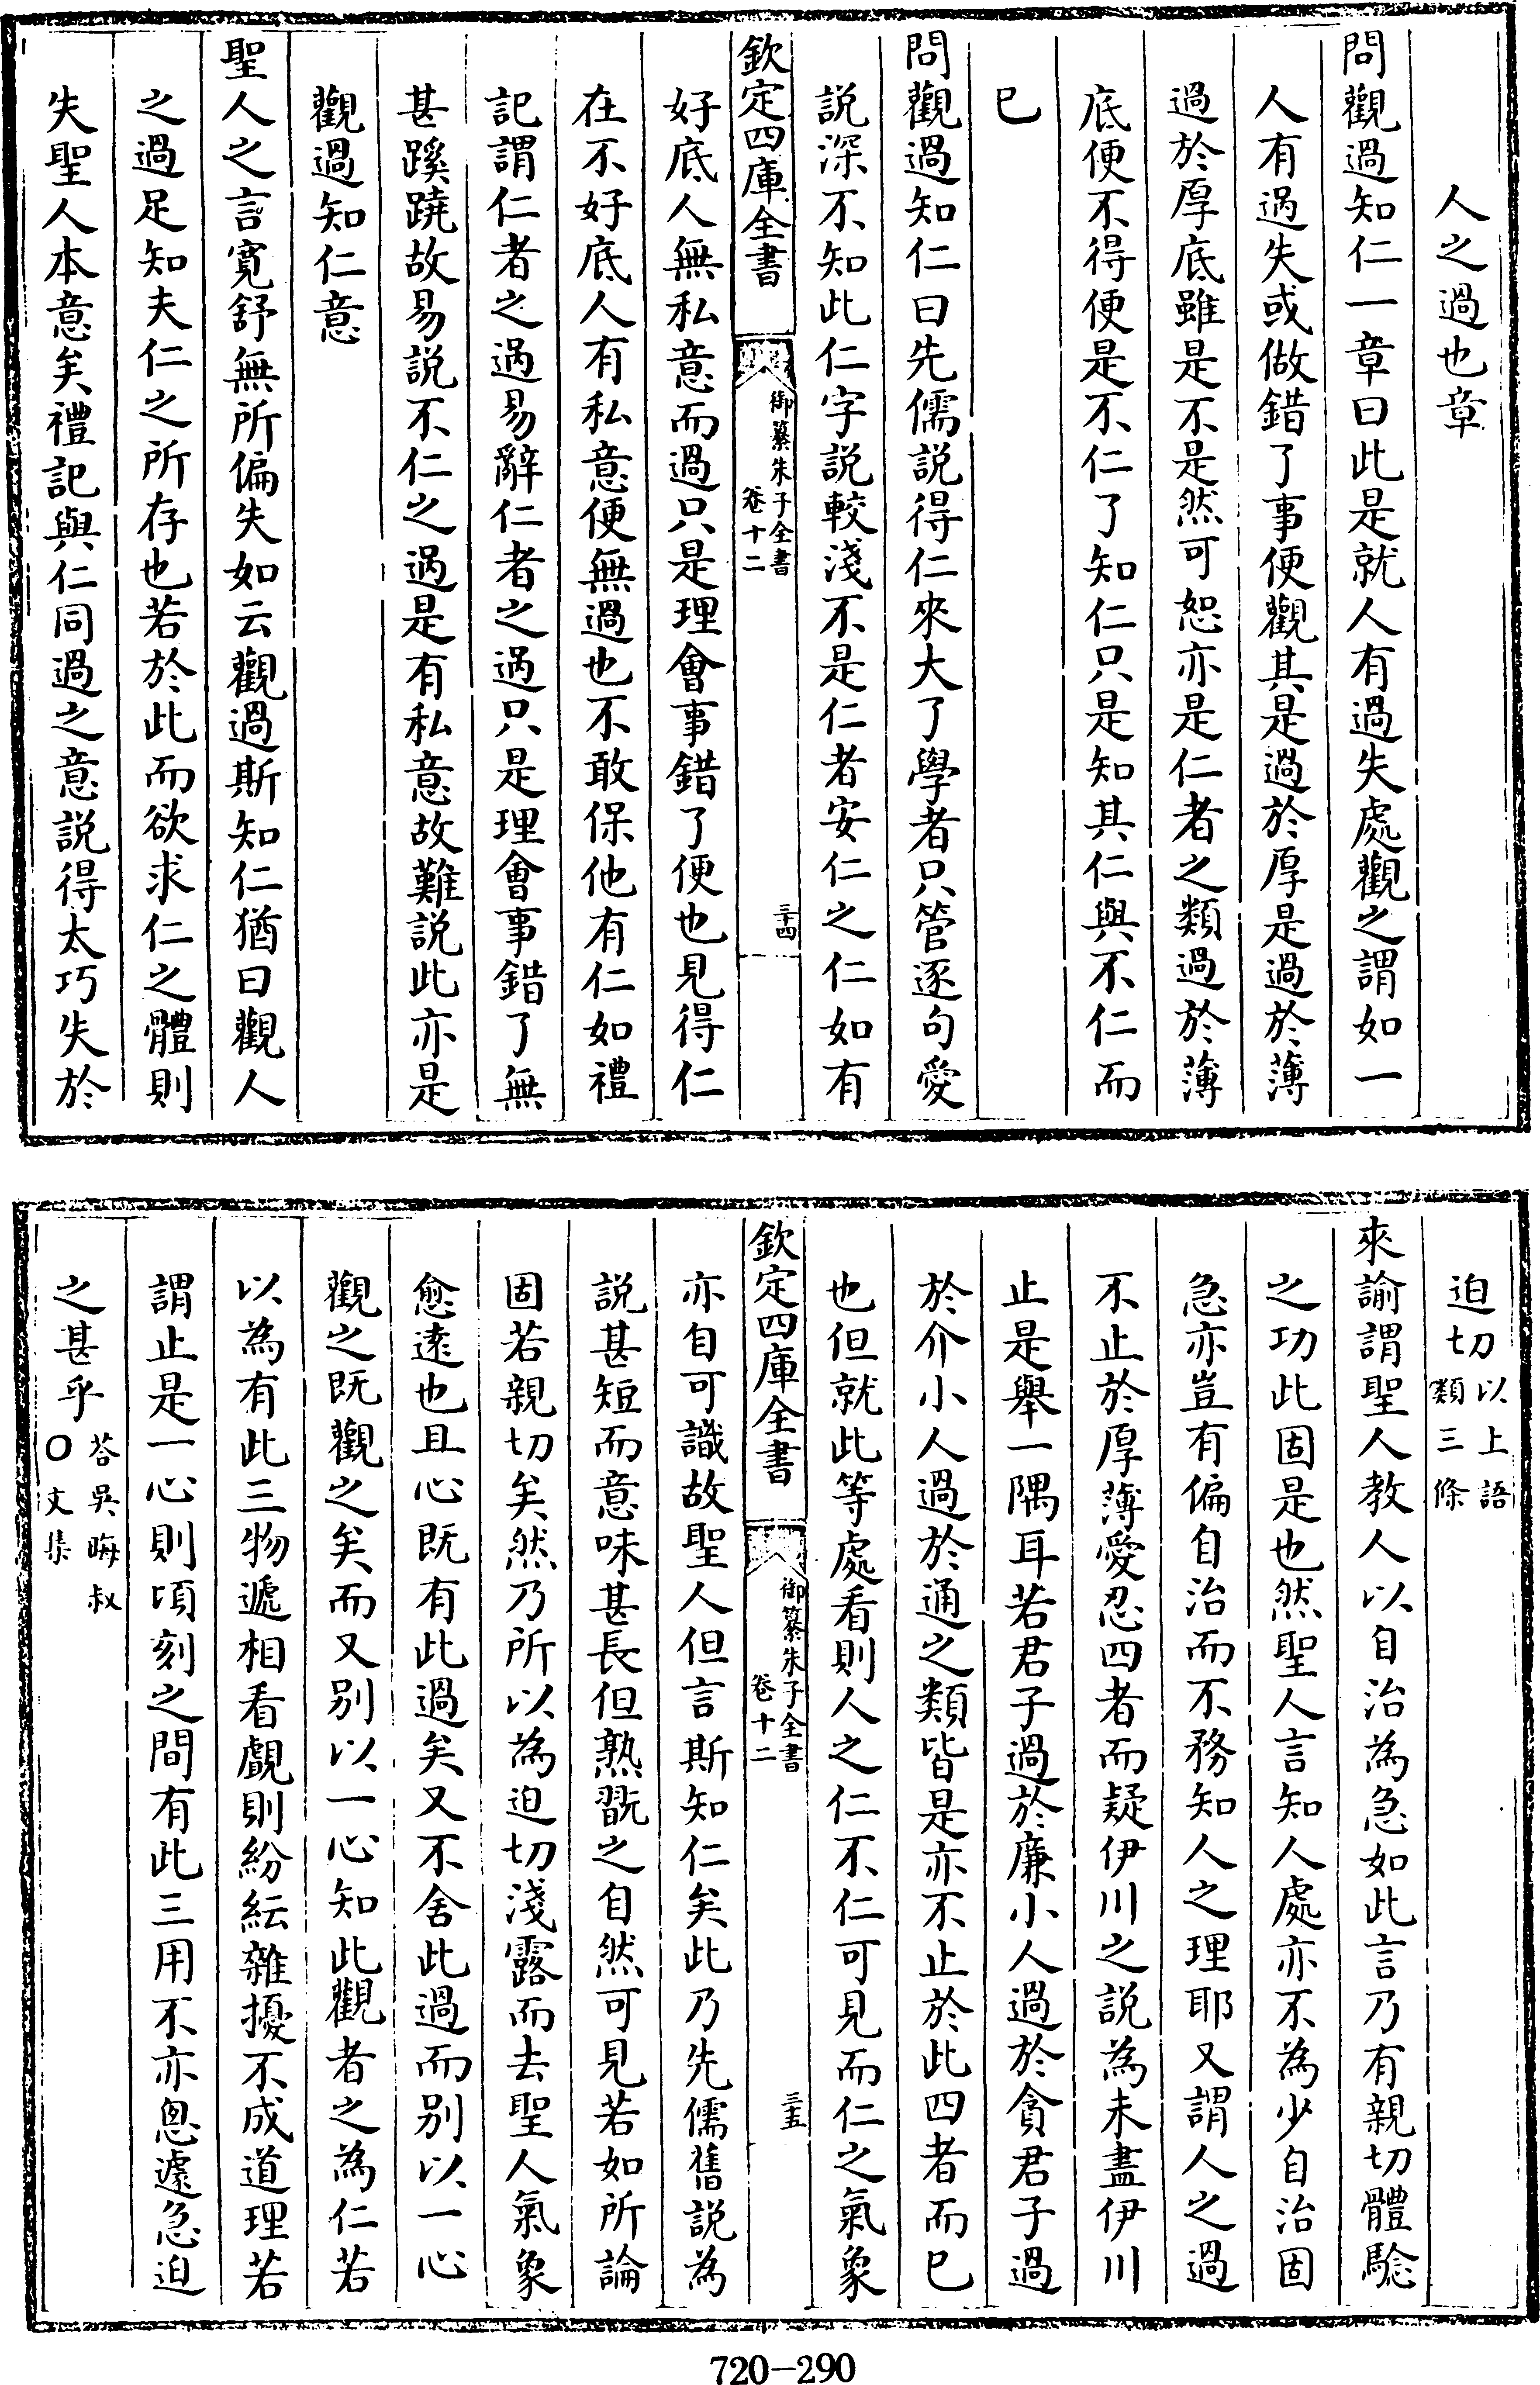 人之過也章
問觀過知仁一章曰此是就人有過失處觀之謂如一
人有過失或做錯了事便觀其是過於厚是過於薄
過於厚底雖是不是然可恕亦是仁者之類過於薄
底便不得便是不仁了知仁只是知其仁與不仁而
已
問觀過知仁曰先儒説得仁來大了學者只管逐句愛
説深不知此仁字説較淺不是仁者安仁之仁如有
欽定四庫全書
御纂朱子全書
卷十二
三十四
好底人無私意而過只是理會事錯了便也見得仁
在不好底人有私意便無過也不敢保他有仁如禮
記謂仁者之過易辭仁者之過只是理會事錯了無
甚蹊蹺故易説不仁之過是有私意故難説此亦是
觀過知仁意
聖人之言寬舒無所偏失如云觀過斯知仁猶曰觀人
之過足知夫仁之所存也若於此而欲求仁之體則
失聖人本意矣禮記與仁同過之意説得太巧失於
迫切以上語
類三條
來諭謂聖人教人以自治為急如此言乃有親切體驗
之功此固是也然聖人言知人處亦不為少自治固
急亦豈有偏自治而不務知人之理耶又謂人之過
不止於厚薄愛忍四者而疑伊川之説為未盡伊川
止是舉一隅耳若君子過於廉小人過於貪君子過
於介小人過於通之類皆是亦不止於此四者而已
也但就此等處看則人之仁不仁可見而仁之氣象
欽定四庫全書
御纂朱子全書
卷十二
三十五
亦自可識故聖人但言斯知仁矣此乃先儒舊説為
説甚短而意味甚長但熟翫之自然可見若如所論
固若親切矣然乃所以為迫切淺露而去聖人氣象
愈遠也且心既有此過矣又不舍此過而别以一心
觀之既觀之矣而又别以一心知此觀者之為仁若
以為有此三物遞相看覷則紛紜雜擾不成道理若
謂止是一心則頃刻之間有此三用不亦怱遽急迫
之甚乎荅吳晦叔
○文集
720-290